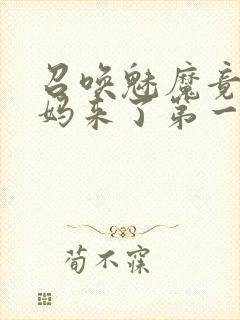 召唤魅魔竟
妈来了第一
荀不寐